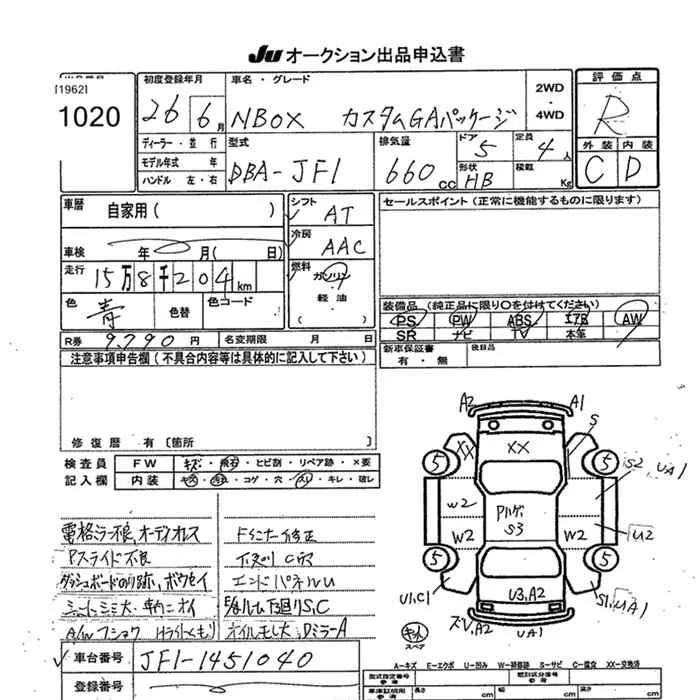 JU オークション出品申込書
[1962]
1020
初度登録年月
26 6月
車名・グレード
NBOX カスタムGAパッケージ
2WD
・
4WD
評価点
R
ディーラー・並行
モデル年式 年
ハンドル 左・右
型式
DBA-JF1
排気量
660cc
ドア 5
形状 HB
定員 4人
積載 Kg
外装 内装
C D
車歴 自家用( )
シフト AT
冷房 AAC
セールスポイント(正常に機能するものに限ります)
車検 年 月( 日)
走行 15万8千204km
燃料 ガソリン
・
軽油
( )
色 青
色替
色コード
装備品(純正品に限り○を付けてください)
PS PW ABS エアB AW
SR ナビ TV 本革
R券 9,790円
名変期限 月 日
新車保証書
有・無
後日品
注意事項申告欄(不具合内容等は具体的に記入して下さい)
修復歴 有〔箇所 〕
検査員
記入欄
FW キズ・飛石・ヒビ割・リペア跡・×要
内装 キズ・汚れ・コゲ・穴・スリ・キレ・破レ
電格ミラー不良、オーディオレス
Pスライド不良
ダッシュボードのり跡、ボウセイ
シートシミ大・車内ニオイ
A/Wフショク Hライトくもり
Fコーナー修正
下スリ C穴
エンドパネルU
下廻りS,C
オイルモレ大、DミラーA
A2 A1
S
XX XX
5 5
S2 UA1
W2
Pルーフ
S3
W2 W2 U2
5 5
U1,C1
U3,A2
S1,UA1
ズレ,A2
UA1
キズ
スペア
A-キズ E-エクボ U-凹み W-補修跡 S-サビ C-腐食 XX-交換済
車台番号 JF1-1451040
登録番号
型式指定番号
参考
類別区分番号
参考
車庫証明用
参考
長さ cm
幅 cm
高さ cm